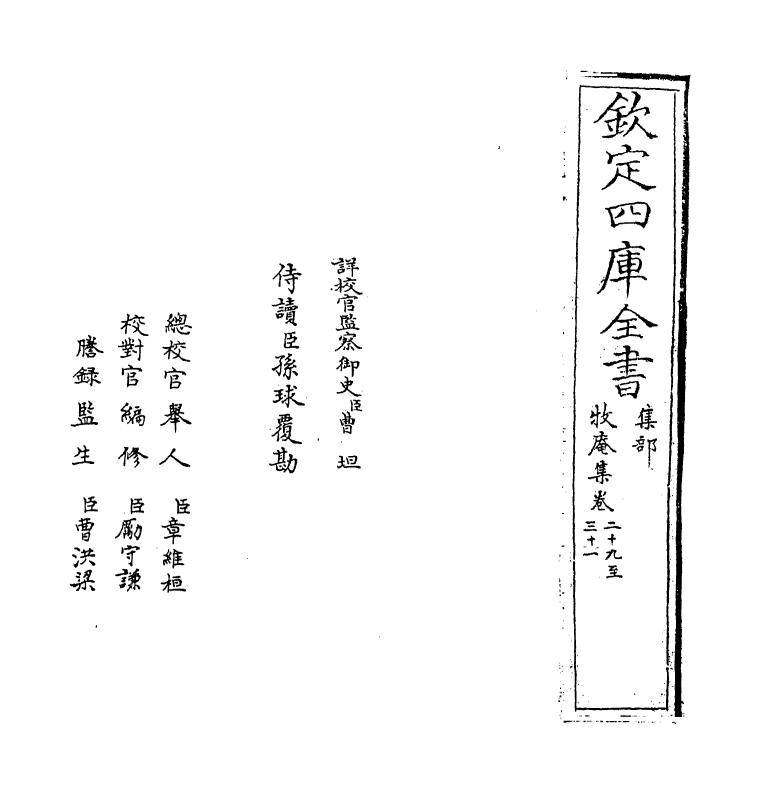 欽定四庫全書
集部
牧庵集卷二十九至
三十一
詳校官監察御史臣曹坦
侍讀臣孫球覆勘
總校官舉人臣章維桓
校對官編修臣勵守謙
謄録監生臣曹洪梁